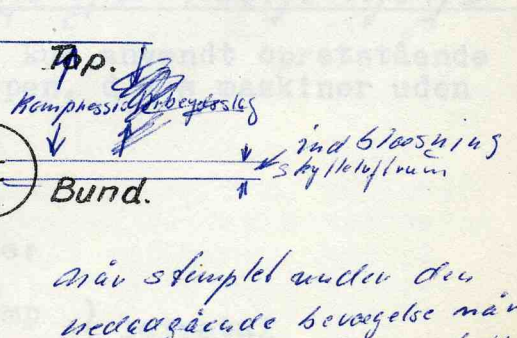 anvendt opretstående
maskiner uden
Top.
Kompression Arbejdsslag
indblæsning
skylleluftrum
Bund.
når stimplet under den
nedadgående bevægelse når